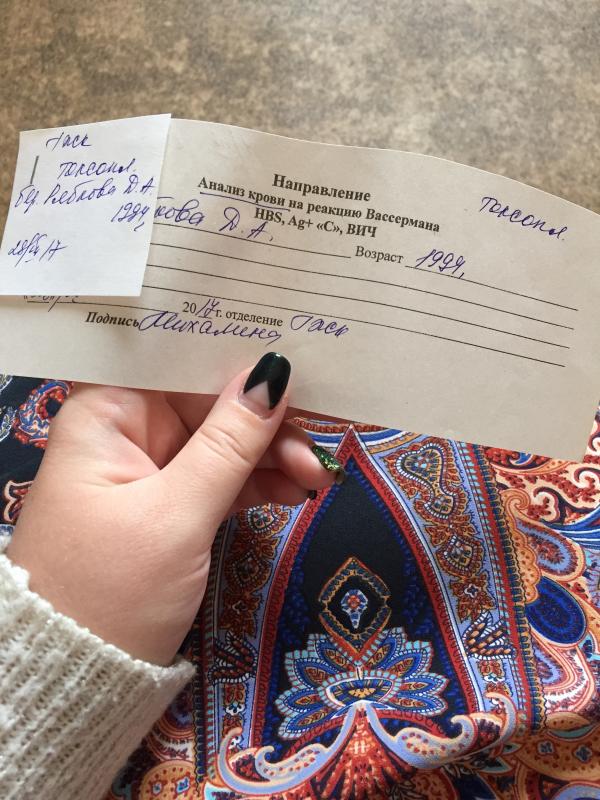 Гаск
Токсопл.
бер. Рябкова Д.А.
1994,
28/ /17
Направление
Анализ крови на реакцию Вассермана
HBS, Ag+ «С», ВИЧ
Токсопл.
кова Д.А,
Возраст 1994,
2017 г. отделение Гаск
Подпись